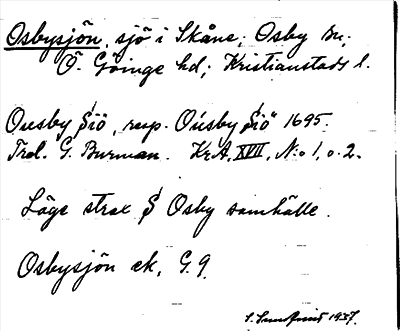 Osbysjön, sjö i Skåne; Osby sn;
Ö. Göinge hd; Kristianstads l.
Ousby Siö, resp. Oúsby Siö 1695.
Trol. G. Burman. KrA, XVII, N:o 1, o. 2.
Läge strax S Osby samhälle.
Osbysjön ek, G.9.
1937.